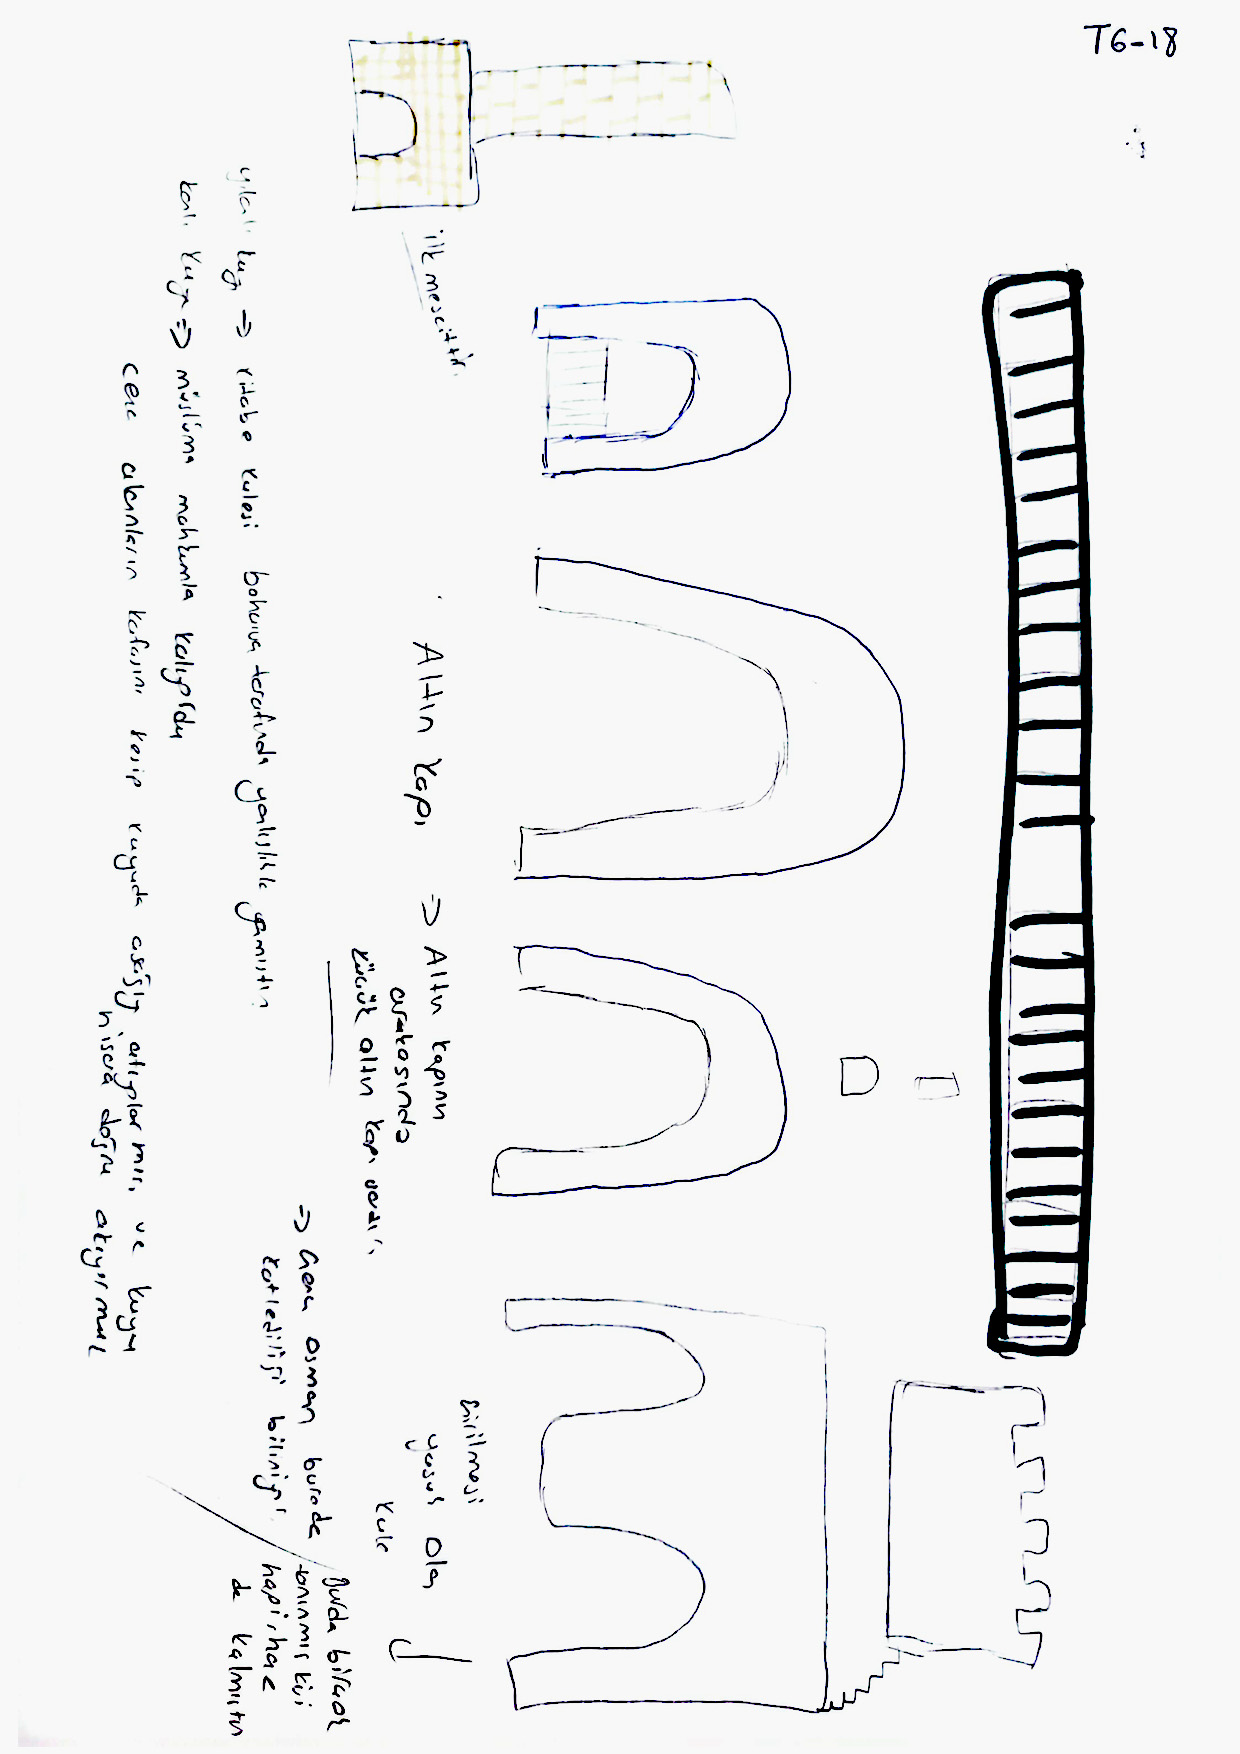 TG-18
ilk mescittir.
Altın Kapı
=> Altın kapının
arkasında
küçük altın kapı vardır.
Girilmesi
yasak olan
kule
=> Genç Osman burada
katlediliği biliniyor.
Burda birçok
tanınmış kişi
hapishae
de kalmıştır
=> kitabe kulesi tarafında yanlışlıkla
kuyu => müslüma mahkumla kalıyordu
ceza alanların kafasını kesip kuyuda aşağıy atıyolarmış ve kuyu
hisara doğru akıyormuş